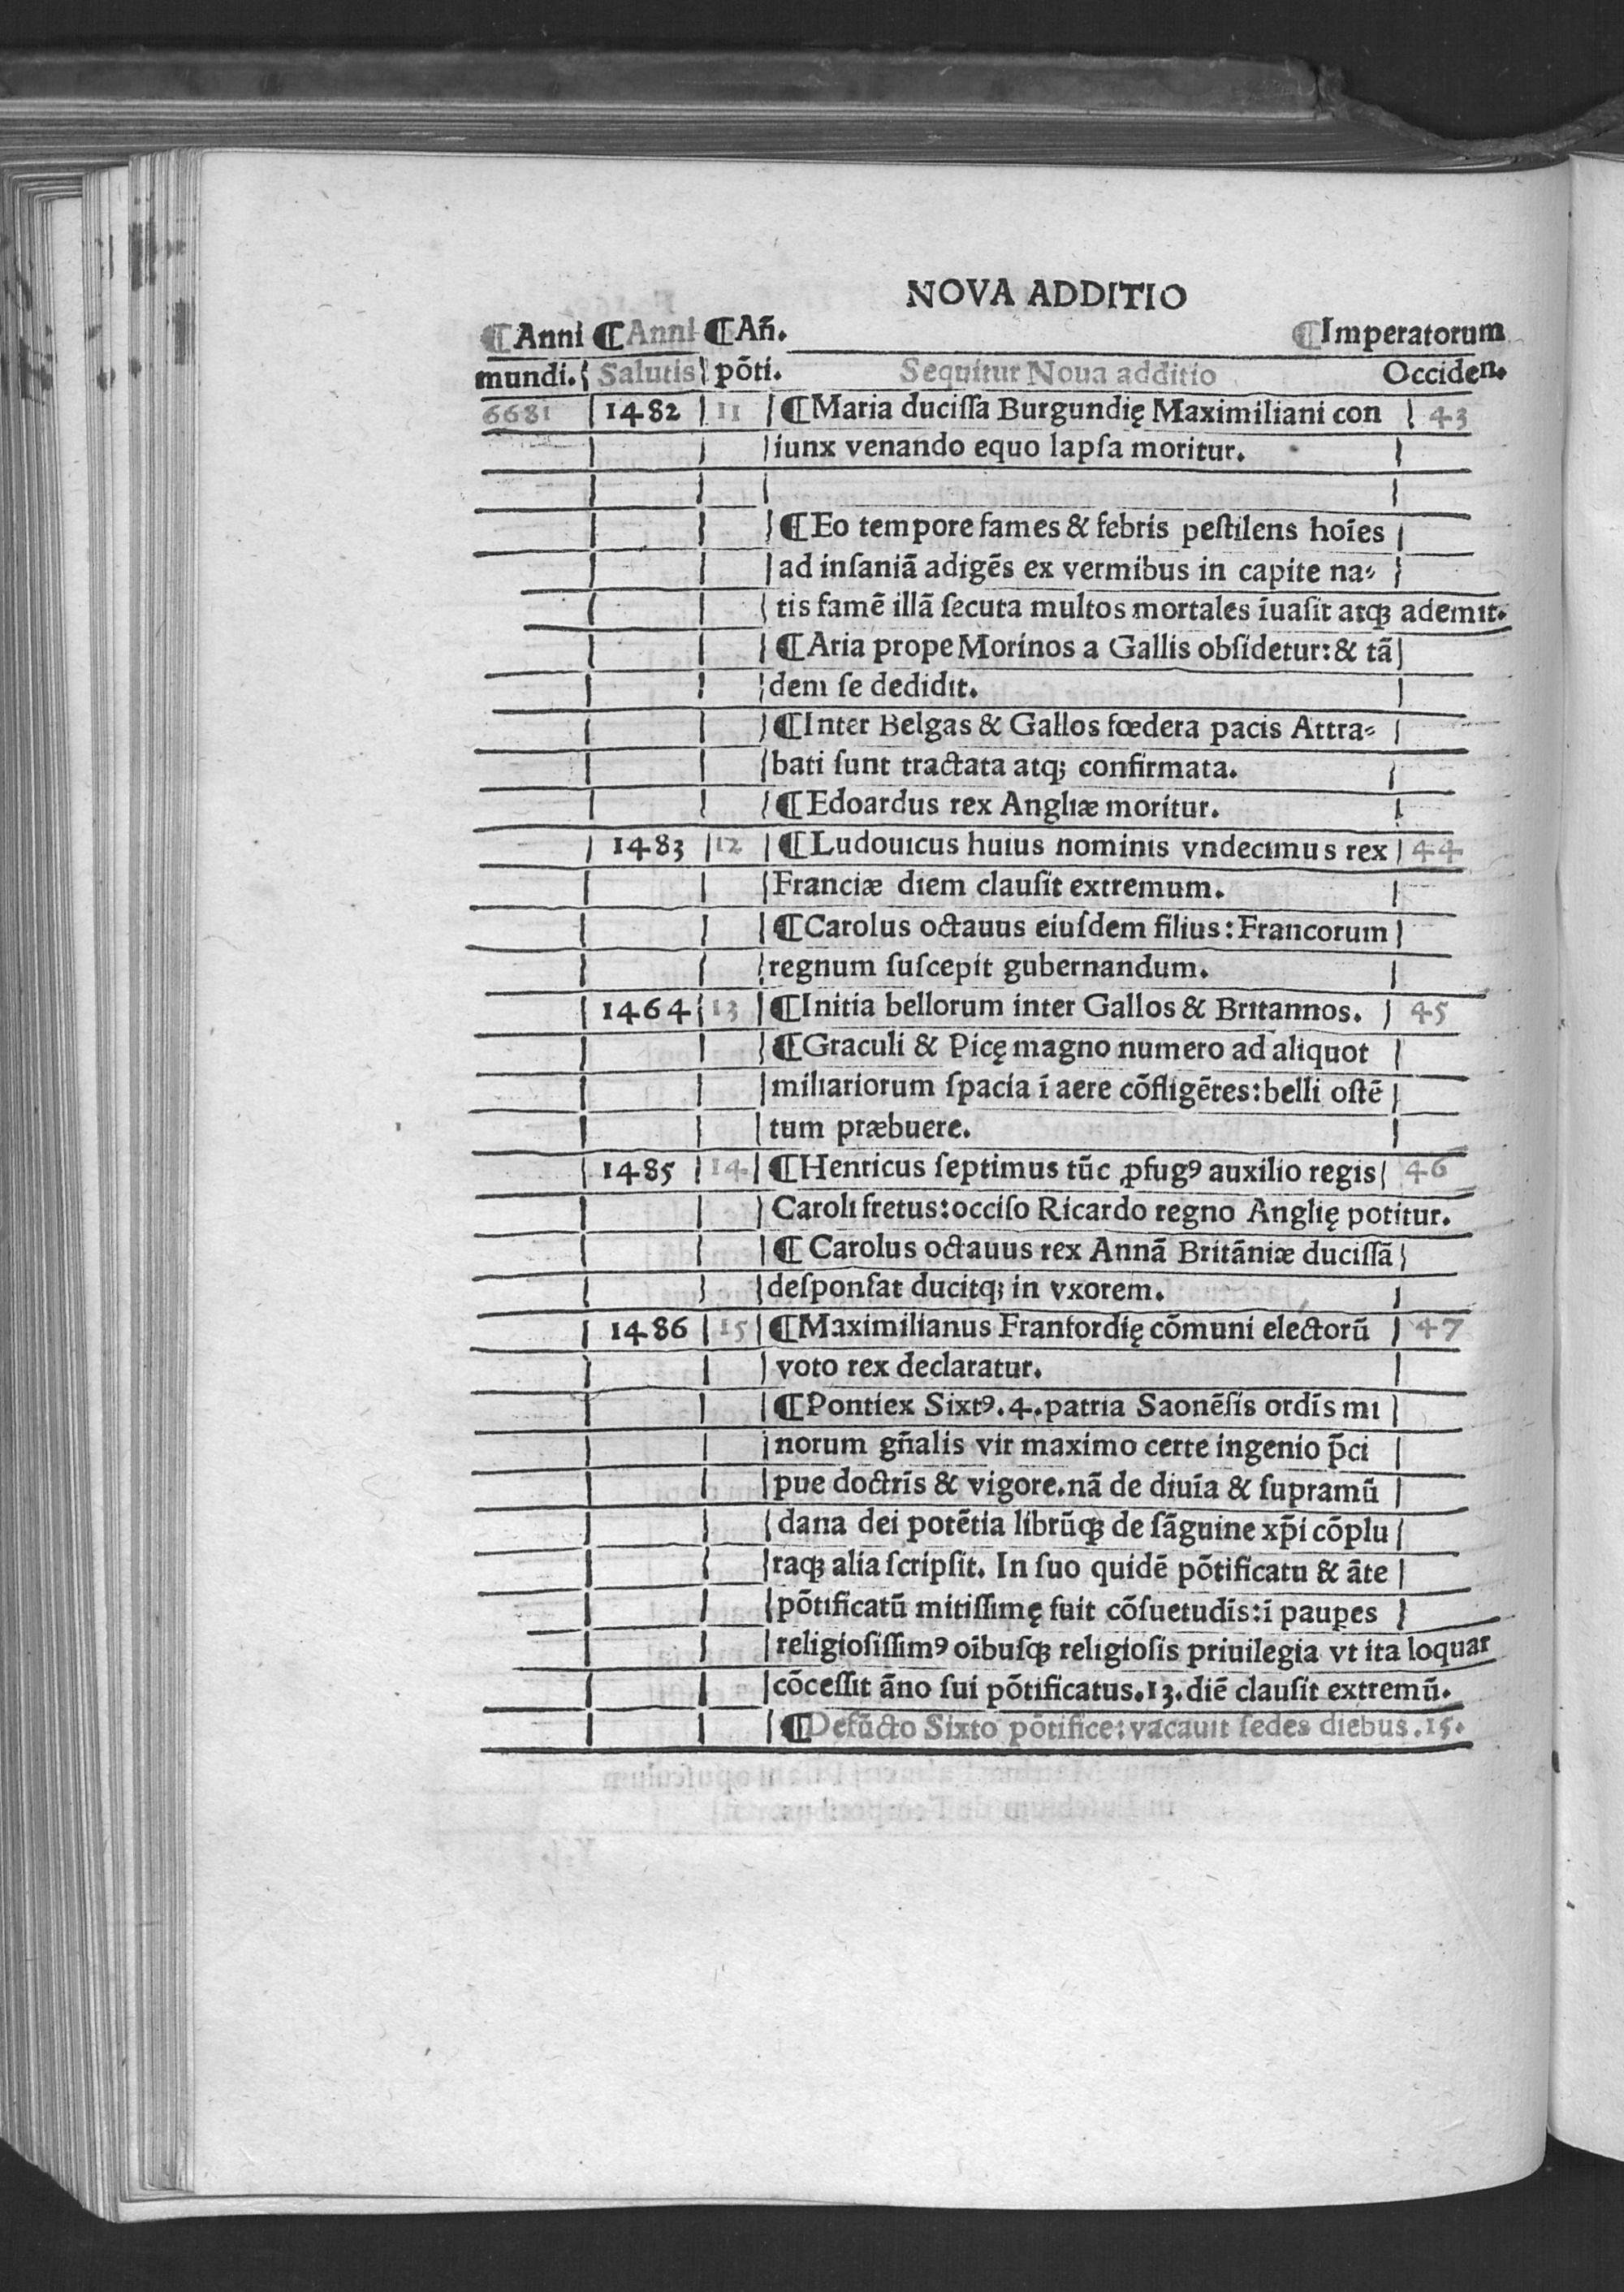 NOVA ADDITIO
¶Anni ¶Anni ¶Añ. ¶Imperatorum
mundi. Salutis põti. Sequitur Noua additio Occiden.
6681 1482 11 ¶Maria duciſſa Burgundię Maximiliani con 43
iunx venando equo lapſa moritur.
¶Eo tempore fames & febris peſtilens hoīes
ad inſaniã adigẽs ex vermibus in capite na⸗
tis famẽ illã ſecuta multos mortales ĩuaſit atqꝫ ademit.
¶Aria prope Morinos a Gallis obſidetur: & tã
dem ſe dedidit.
¶Inter Belgas & Gallos fœdera pacis Attra⸗
bati ſunt tractata atq; confirmata.
¶Edoardus rex Angliæ moritur.
1483 12 ¶Ludouicus huius nominis vndecimus rex 44
Franciæ diem clauſit extremum.
¶Carolus octauus eiuſdem filius: Francorum
regnum ſuſcepit gubernandum.
1464 13 ¶Initia bellorum inter Gallos & Britannos. 45
¶Graculi & Picę magno numero ad aliquot
miliariorum ſpacia ĩ aere cõfligẽtes: belli oſtẽ
tum præbuere.
1485 14 ¶Henricus ſeptimus tũc ꝓfugꝰ auxilio regis 46
Caroli fretus: occiſo Ricardo regno Anglię potitur.
¶ Carolus octauus rex Annã Britãniæ duciſſã
deſponſat ducitq; in vxorem.
1486 15 ¶Maximilianus Franfordię cõmuni electorũ 47
voto rex declaratur.
¶Pontiex Sixtꝰ. 4. patria Saonẽſis ordĩs mi
norum gñalis vir maximo certe ingenio p̃ci
pue doctrĩs & vigore. nã de diuĩa & ſupramũ
dana dei potẽtia librũqꝫ de ſãguine xp̃i cõplu
raqꝫ alia ſcripſit. In ſuo quidẽ põtificatu & ãte
põtificatũ mitiſſimę fuit cõſuetudĩs: ĩ pauꝑes
religioſiſſimꝰ oĩbuſqꝫ religioſis priuilegia vt ita loquar
cõceſſit ãno ſui põtificatus. 13. diẽ clauſit extremũ.
¶Defũcto Sixto põtifice: vacauit ſedes diebus. 15.